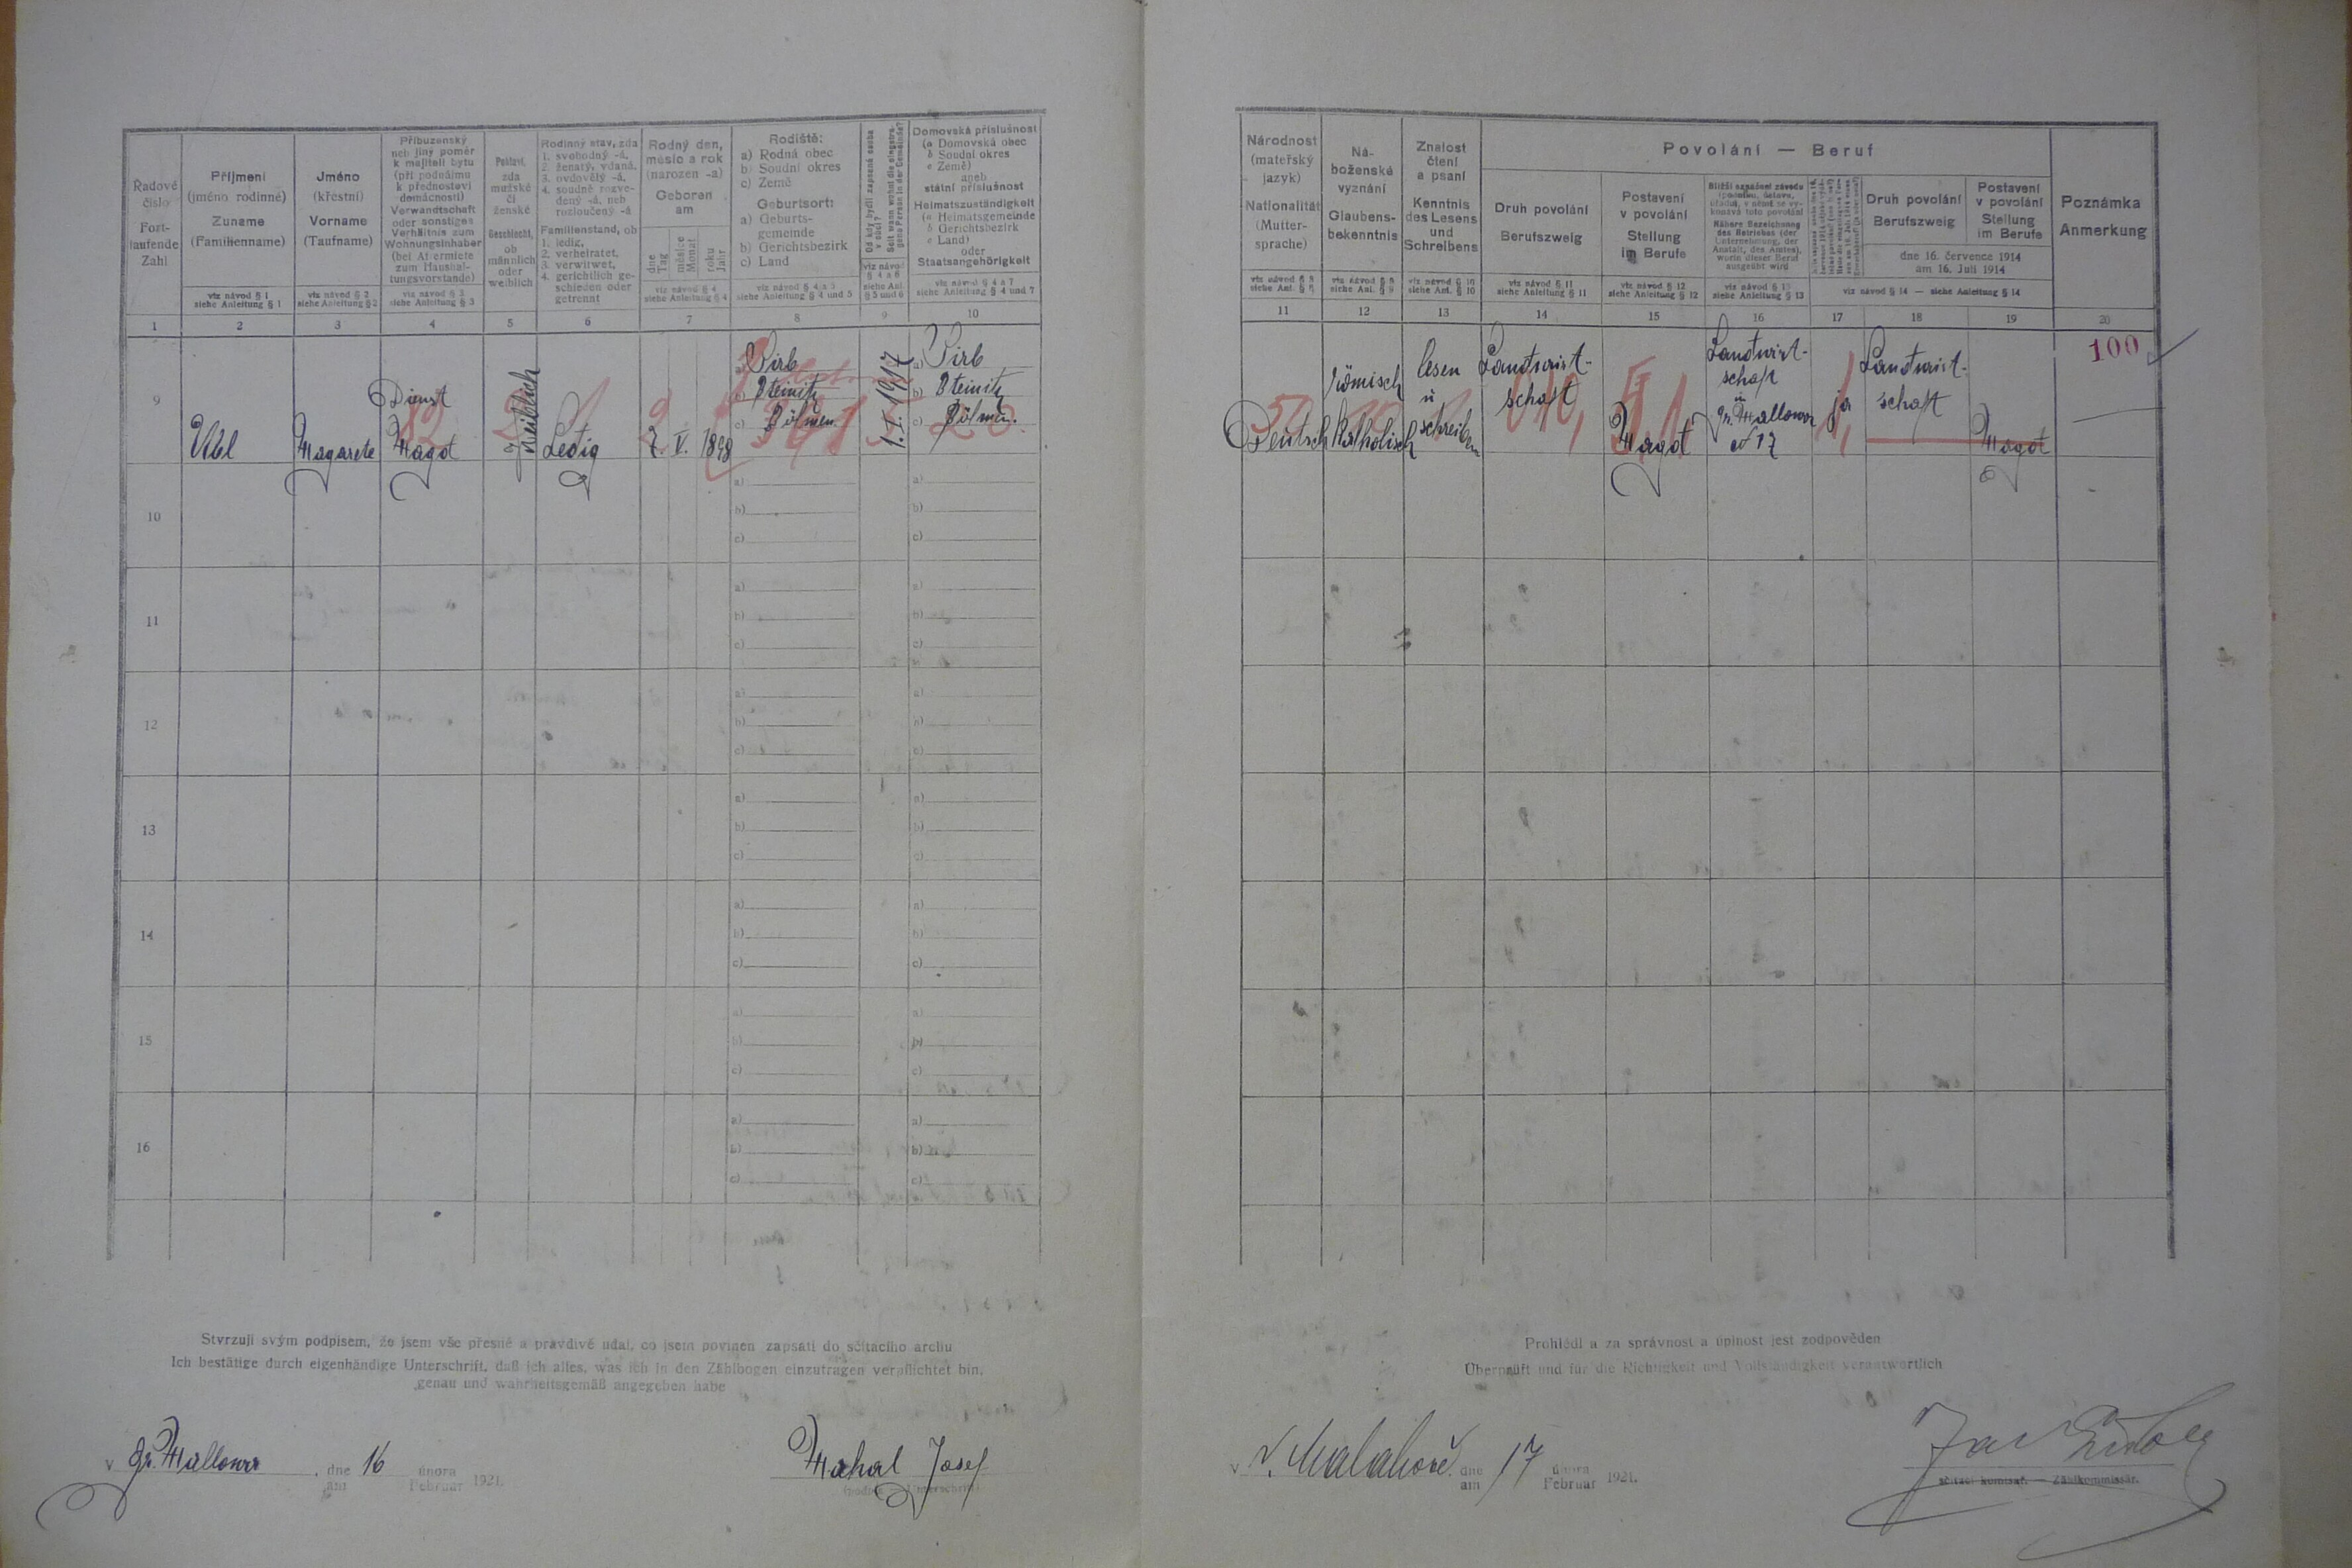 Řadové
číslo
Fort-
laufende
Zahl
Příjmení
(jméno rodinné)
Zuname
(Familienname)
viz návod § 1
siehe Anleitung § 1
Jméno
(křestní)
Vorname
(Taufname)
viz návod § 2
siehe Anleitung § 2
Příbuzenský
neb jiný poměr
k majiteli bytu
(při podnájmu
k přednostovi
domácnosti)
Verwandtschaft
oder sonstiges
Verhältnis zum
Wohnungsinhaber
(bei Aftermiete
zum Haushal-
tungsvorstande)
viz návod § 3
siehe Anleitung § 3
Pohlaví,
zda
mužské
či
ženské
Geschlecht,
ob
männlich
oder
weiblich
Rodinný stav, zda
1. svobodný -á,
2. ženatý, vdaná,
3. ovdovělý -á,
4. soudně rozve-
dený -á, neb
rozloučený -á
Familienstand, ob
1. ledig,
2. verheiratet,
3. verwitwet,
4. gerichtlich ge-
schieden oder
getrennt
Rodný den,
měsíc a rok
(narozen -a)
Geboren
am
dne
Tag
měsíce
Monat
roku
Jahr
viz návod § 4
siehe Anleitung § 4
Rodiště:
a) Rodná obec
b) Soudní okres
c) Země
Geburtsort:
a) Geburts-
gemeinde
b) Gerichtsbezirk
c) Land
viz návod § 4 a 5
siehe Anleitung § 4 und 5
Od kdy bydlí zapsaná osoba
v obci?
Seit wann wohnt die eingetra-
gene Person in der Gemeinde?
viz návod
§ 4 a 6
siehe Anl.
§ 5 und 6
Domovská příslušnost
(a Domovská obec
b Soudní okres
c Země)
aneb
státní příslušnost
Heimatszuständigkeit
(a Heimatsgemeinde
b Gerichtsbezirk
c Land)
oder
Staatsangehörigkeit
viz návod § 4 a 7
siehe Anleitung § 4 und 7
1 2 3 4 5 6 7 8 9 10
9
Utel
Magarete
Dienst
Magd
12
weiblich
Ledig
7. V. 1898
a) Pirb
b) Steinitz
c) Böhmen
1. I. 1917
a) Pirb
b) Steinitz
c) Böhmen.
10
a)
b)
c)
a)
b)
c)
11
a)
b)
c)
a)
b)
c)
12
a)
b)
c)
a)
b)
c)
13
a)
b)
c)
a)
b)
c)
14
a)
b)
c)
a)
b)
c)
15
a)
b)
c)
a)
b)
c)
16
a)
b)
c)
a)
b)
c)
Stvrzuji svým podpisem, že jsem vše přesně a pravdivě udal, co jsem povinen zapsati do sčítacího archu
Ich bestätige durch eigenhändige Unterschrift, daß ich alles, was ich in den Zählbogen einzutragen verpflichtet bin,
genau und wahrheitsgemäß angegeben habe
v Gr. Mallowa, dne 16 února 1921.
am Februar
Mahal Josef
Národnost
(mateřský
jazyk)
Nationalität
(Mutter-
sprache)
viz návod § 8
siehe Anl. § 8
Ná-
boženské
vyznání
Glaubens-
bekenntnis
viz návod § 9
siehe Anl. § 9
Znalost
čtení
a psaní
Kenntnis
des Lesens
und
Schreibens
viz návod § 10
siehe Anl. § 10
Povolání — Beruf
Druh povolání
Berufszweig
viz návod § 11
siehe Anleitung § 11
Postavení
v povolání
Stellung
im Berufe
viz návod § 12
siehe Anleitung § 12
Bližší označení závodu
(podniku, ústavu,
úřadu), v němž se vy-
konává toto povolání
Nähere Bezeichnung
des Betriebes (der
Unternehmung, der
Anstalt, des Amtes),
worin dieser Beruf
ausgeübt wird
viz návod § 13
siehe Anleitung § 13
Druh povolání
Berufszweig
Postavení
v povolání
Stellung
im Berufe
dne 16. července 1914
am 16. Juli 1914
viz návod § 14 — siehe Anleitung § 14
Poznámka
Anmerkung
11 12 13 14 15 16 17 18 19 20
Deutsch
römisch
katholisch
lesen
u
schreiben
Landwirt-
schaft
Magd
Landwirt-
schaft
in
Gr. Mallowa
№ 17
ja
Landwirt-
schaft
Magd
100
Prohlédl a za správnost a úplnost jest zodpověden
Überprüft und für die Richtigkeit und Vollständigkeit verantwortlich
v V. Malahově dne 17 února 1921.
am Februar
sčítací komisař. — Zählkommissär.